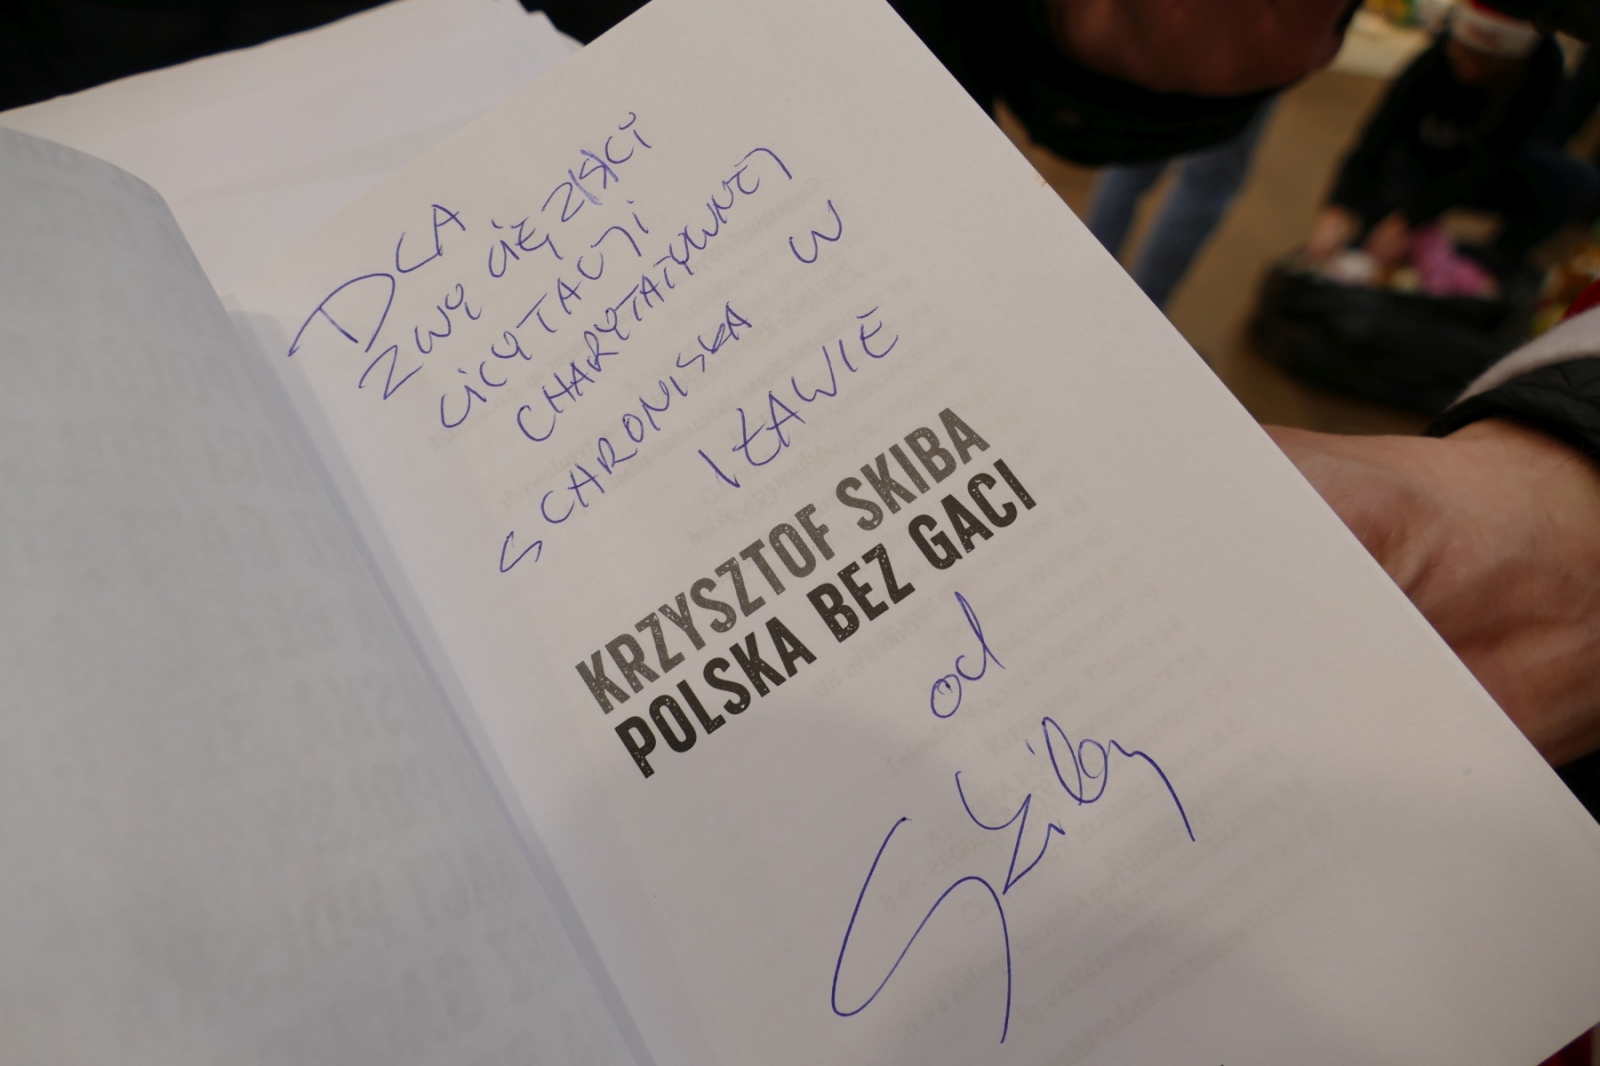 DLA
ZWYCIĘZKI
LICYTACJI
CHARYTATYWNEJ
SCHRONISKA W
IŁAWIE
KRZYSZTOF SKIBA
POLSKA BEZ GACI
od
Skiby